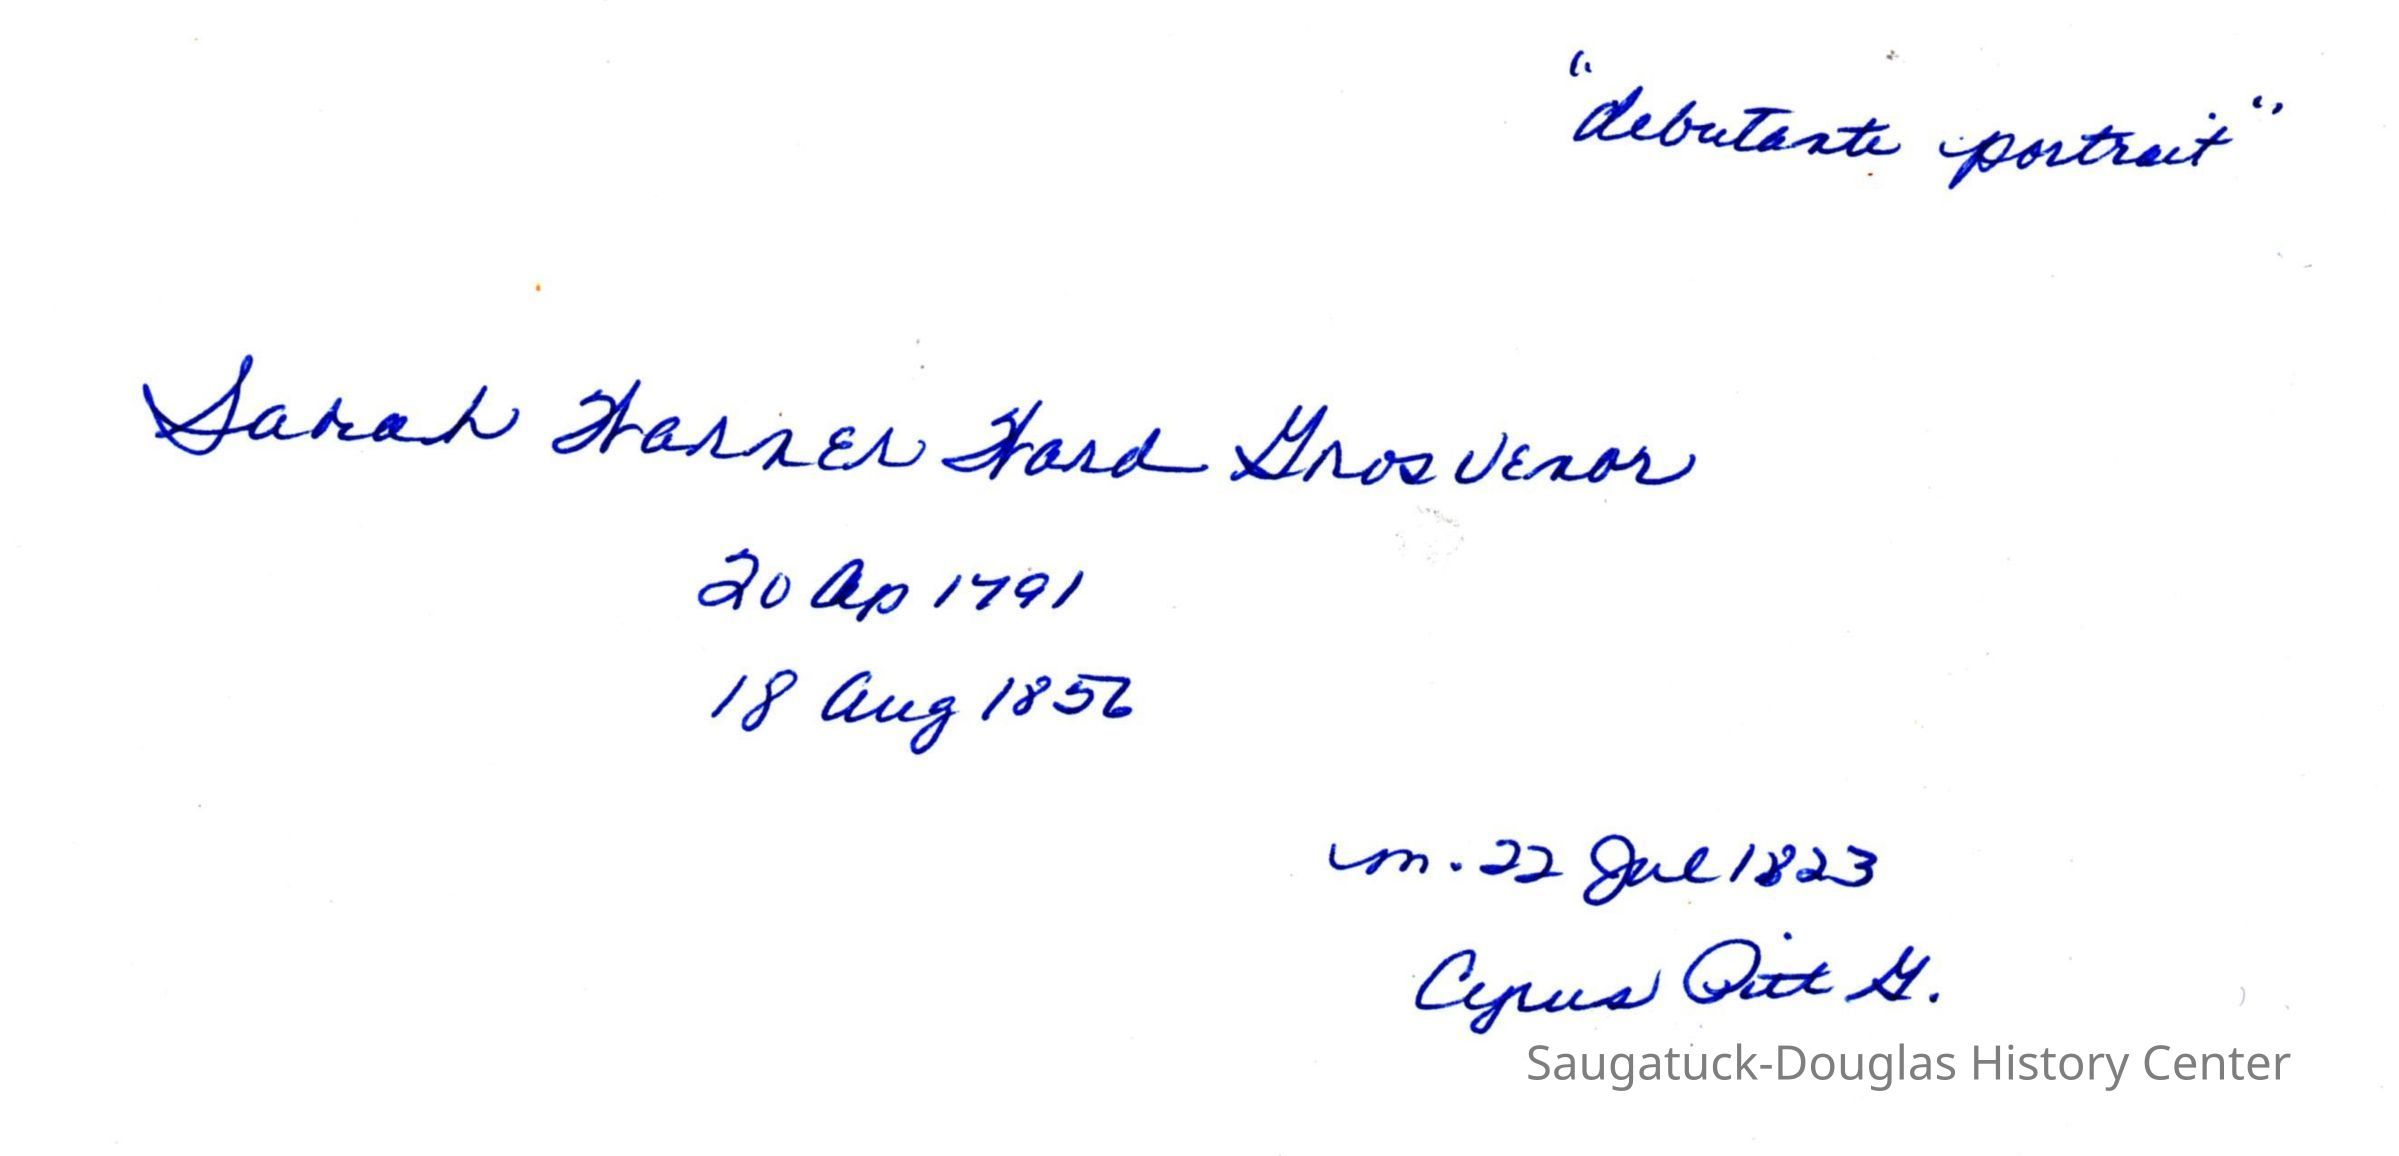 "debutante portrait"
Sarah Warner Ward Grosvenor
20 Ap 1791
18 Aug 1856
m. 22 Jul 1823
Cyrus Pitt G.
Saugatuck-Douglas History Center